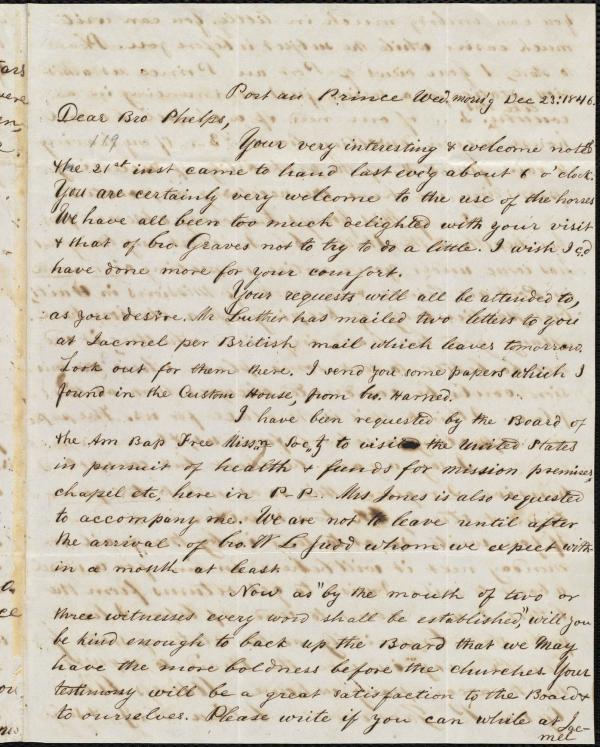 Port au Prince Wed. morn'g Dec 23. 1846.
Dear Bro Phelps,
119
Your very interesting & welcome note of
the 21st inst came to hand last ev'g about 6 o'clock.
You are certainly very welcome to the use of the horses
We have all been too much delighted with your visit
& that of bro Graves not to try to do a little. I wish I c'd
have done more for your comfort.
Your requests will all be attended to,
as you desire. Mr Luther has mailed two letters to you
at Jacmel per British mail which leaves tomorrow.
Look out for them there. I send you some papers which I
found in the Custom House, from bro. Harned.
I have been requested by the Board of
the Am Bap Free Miss.n Soc.ty to visit the United States
in pursuit of health & funds for mission premises,
chapel etc, here in P-P. Mrs Jones is also requested
to accompany me. We are not to leave until after
the arrival of bro. W L Judd whom we expect with-
in a month at least.
Now as "by the mouth of two or
three witnesses every word shall be established," will you
be kind enough to back up the Board that we may
have the more boldness before the churches. Your
testimony will be a great satisfaction to the Board &
to ourselves. Please write if you can while at Jac-
mel